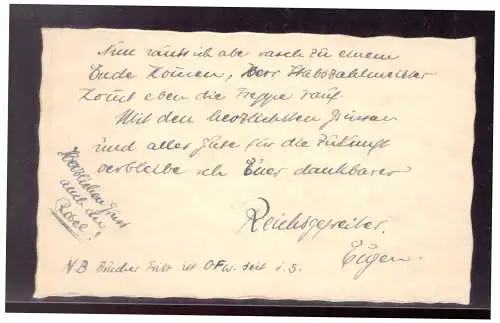 Nun muss ich aber rasch zu einem
Ende komen, Herr Stabszahlmeister
komt eben die Treppe rauf.
Mit den herzlichsten Grüssen
und alles Gute für die Zukunft
verbleibe ich Euer dankbarer
Reichsgefreiter.
Eugen.
Herzlichen Gruss
auch an
Rosel!
N.B Bruder Fritz ist OFw. seit 1.5.